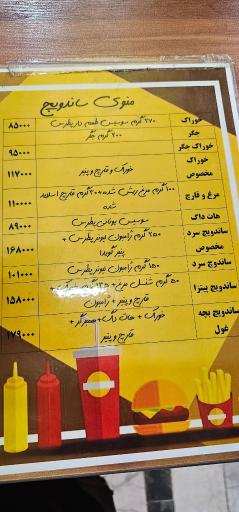 منوی ساندویچ
خوراک ۲۷۰ گرم سوسیس طعم دار پطرس ۸۵۰۰۰
جگر ۲۰۰ گرم جگر
خوراک جگر ۹۵۰۰۰
خوراک مخصوص خوراک و قارچ و پنیر ۱۱۷۰۰۰
مرغ و قارچ ۱۰۰ گرم مرغ ریش شده + ۲۰ گرم قارچ اسلایس شده ۱۱۰۰۰۰
هات داگ سوسیس یونانی پطرس ۸۹۰۰۰
ساندویچ سرد مخصوص ۲۵۰ گرم ژامبون پطرس + پنیر گودا ۱۶۸۰۰۰
ساندویچ سرد ۱۵۰ گرم ژامبون پطرس ۱۰۱۰۰۰
ساندویچ پیتزا ۵۰ گرم مرغ + قارچ و پنیر + ژامبون ۱۵۸۰۰۰
ساندویچ بچه غول خوراک + هات داگ + همبرگر + قارچ و پنیر ۱۷۹۰۰۰